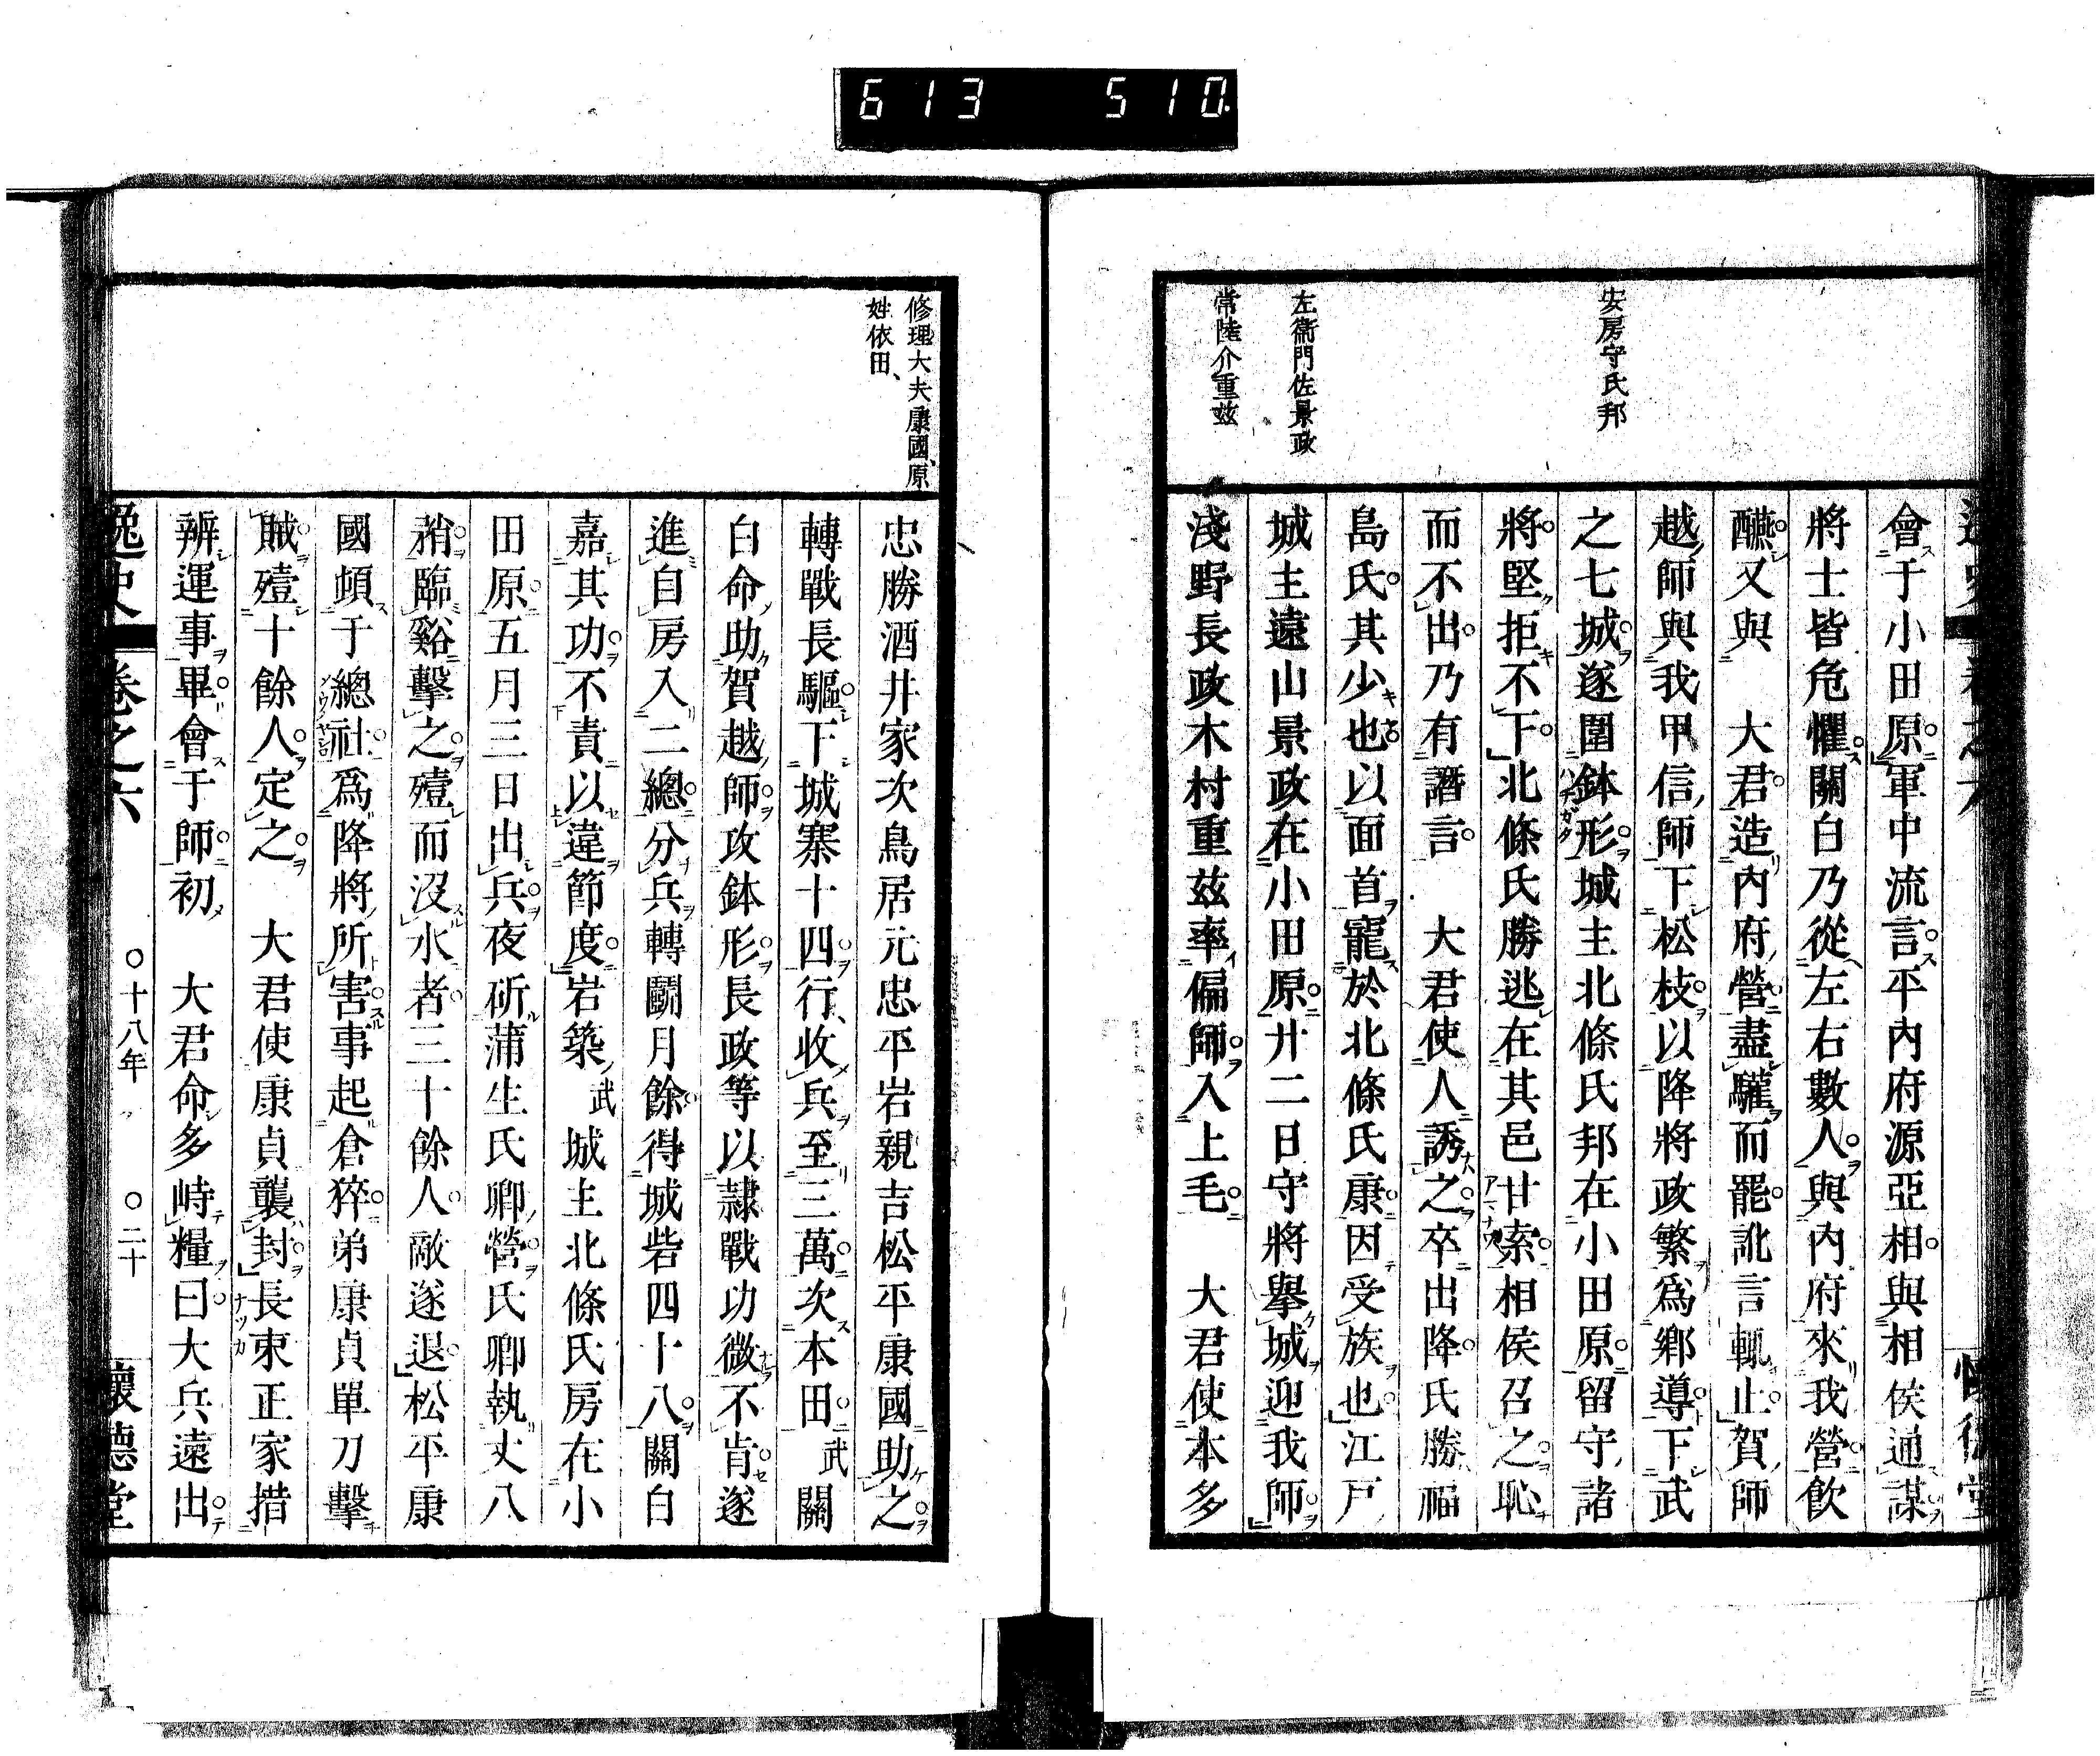 613 510
安房守氏邦
左衞門佐景政
常陸介重玆
會于小田原軍中流言平內府源亞相與相侯通謀
將士皆危懼關白乃從左右數人與內府來我營飮
醼又與　大君造內府營盡驩而罷訛言輒止賀師
越師與我甲信師下松枝以降將政繁爲鄉導下武
之七城遂圍鉢形城主北條氏邦在小田原留守諸
將堅拒不下北條氏勝逃在其邑甘索相侯召之恥
而不出乃有譖言　大君使人誘之卒出降氏勝福
島氏其少也以面首寵於北條氏康因受族也江戸
城主遠山景政在小田原廿二日守將擧城迎我師
淺野長政木村重玆率偏師入上毛　大君使本多
修理大夫康國、原
姓依田、
忠勝酒井家次鳥居元忠平岩親吉松平康國助之
轉戰長驅下城寨十四行收兵至三萬次本田武關
白命助賀越師攻鉢形長政等以隷戰功微不肯遂
進自房入二總分兵轉鬭月餘得城砦四十八關白
嘉其功不責以違節度岩築武城主北條氏房在小
田原五月三日出兵夜斫蒲生氏卿營氏卿執丈八
矟臨谿擊之殪而沒水者三十餘人敵遂退松平康
國頓于總社爲降將所害事起倉猝弟康貞單刀擊
賊殪十餘人定之　大君使康貞襲封長束正家措
辨運事畢會于師初　大君命多峙糧曰大兵遠出
逸史　卷之六　○十八年　○二十　懷德堂